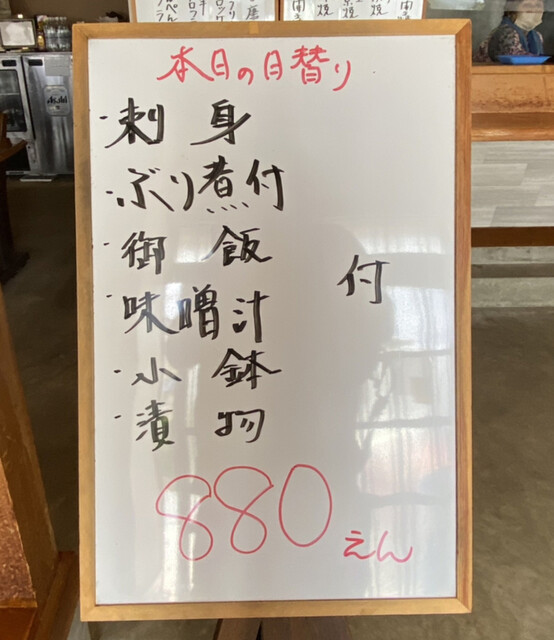 本日の日替り
・刺身
・ぶり煮付
・御飯
・味噌汁
付
・小鉢
・漬物
880えん